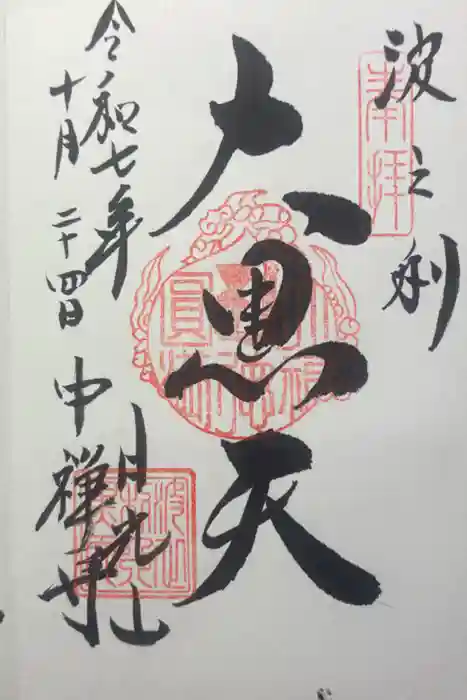 波之利
奉拝
大黒天
日光山
中禅寺
令和七年
十月二十四日